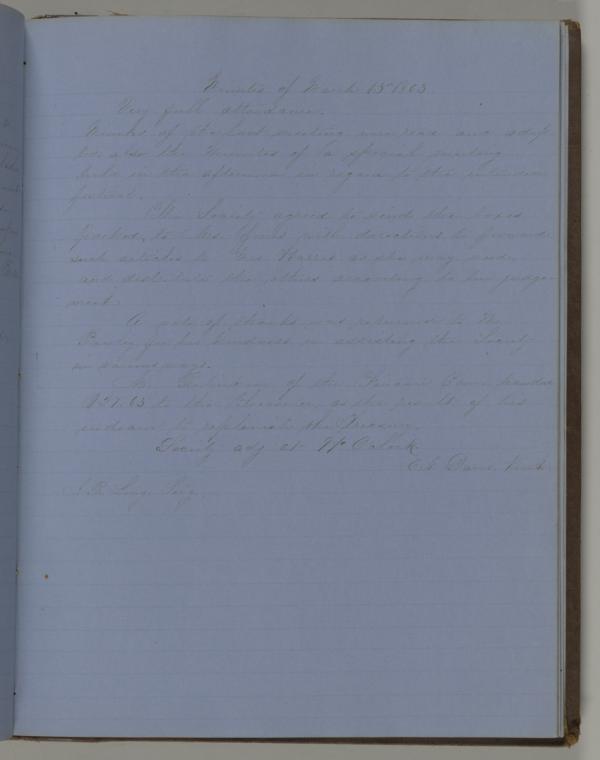 Minutes of March 13th 1863.
Very full attendance.
Minutes of the last meeting were read and adop-
ted, also the Minutes of a special meeting
held in the afternoon in regard to the
festival.
The Society agreed to send the boxes
packed, to Mrs. with directions to forward
such articles to Mrs Harris as she may need
and distribute the others according to her judge-
ment.
A vote of thanks was returned to Mr
for his kindness in assisting the Society
in various ways.
of the Finance Com. handed
$27.63 to the Treasurer, as the result of his
endeavor to replenish the Treasury.
Society adj at 9½ O'clock